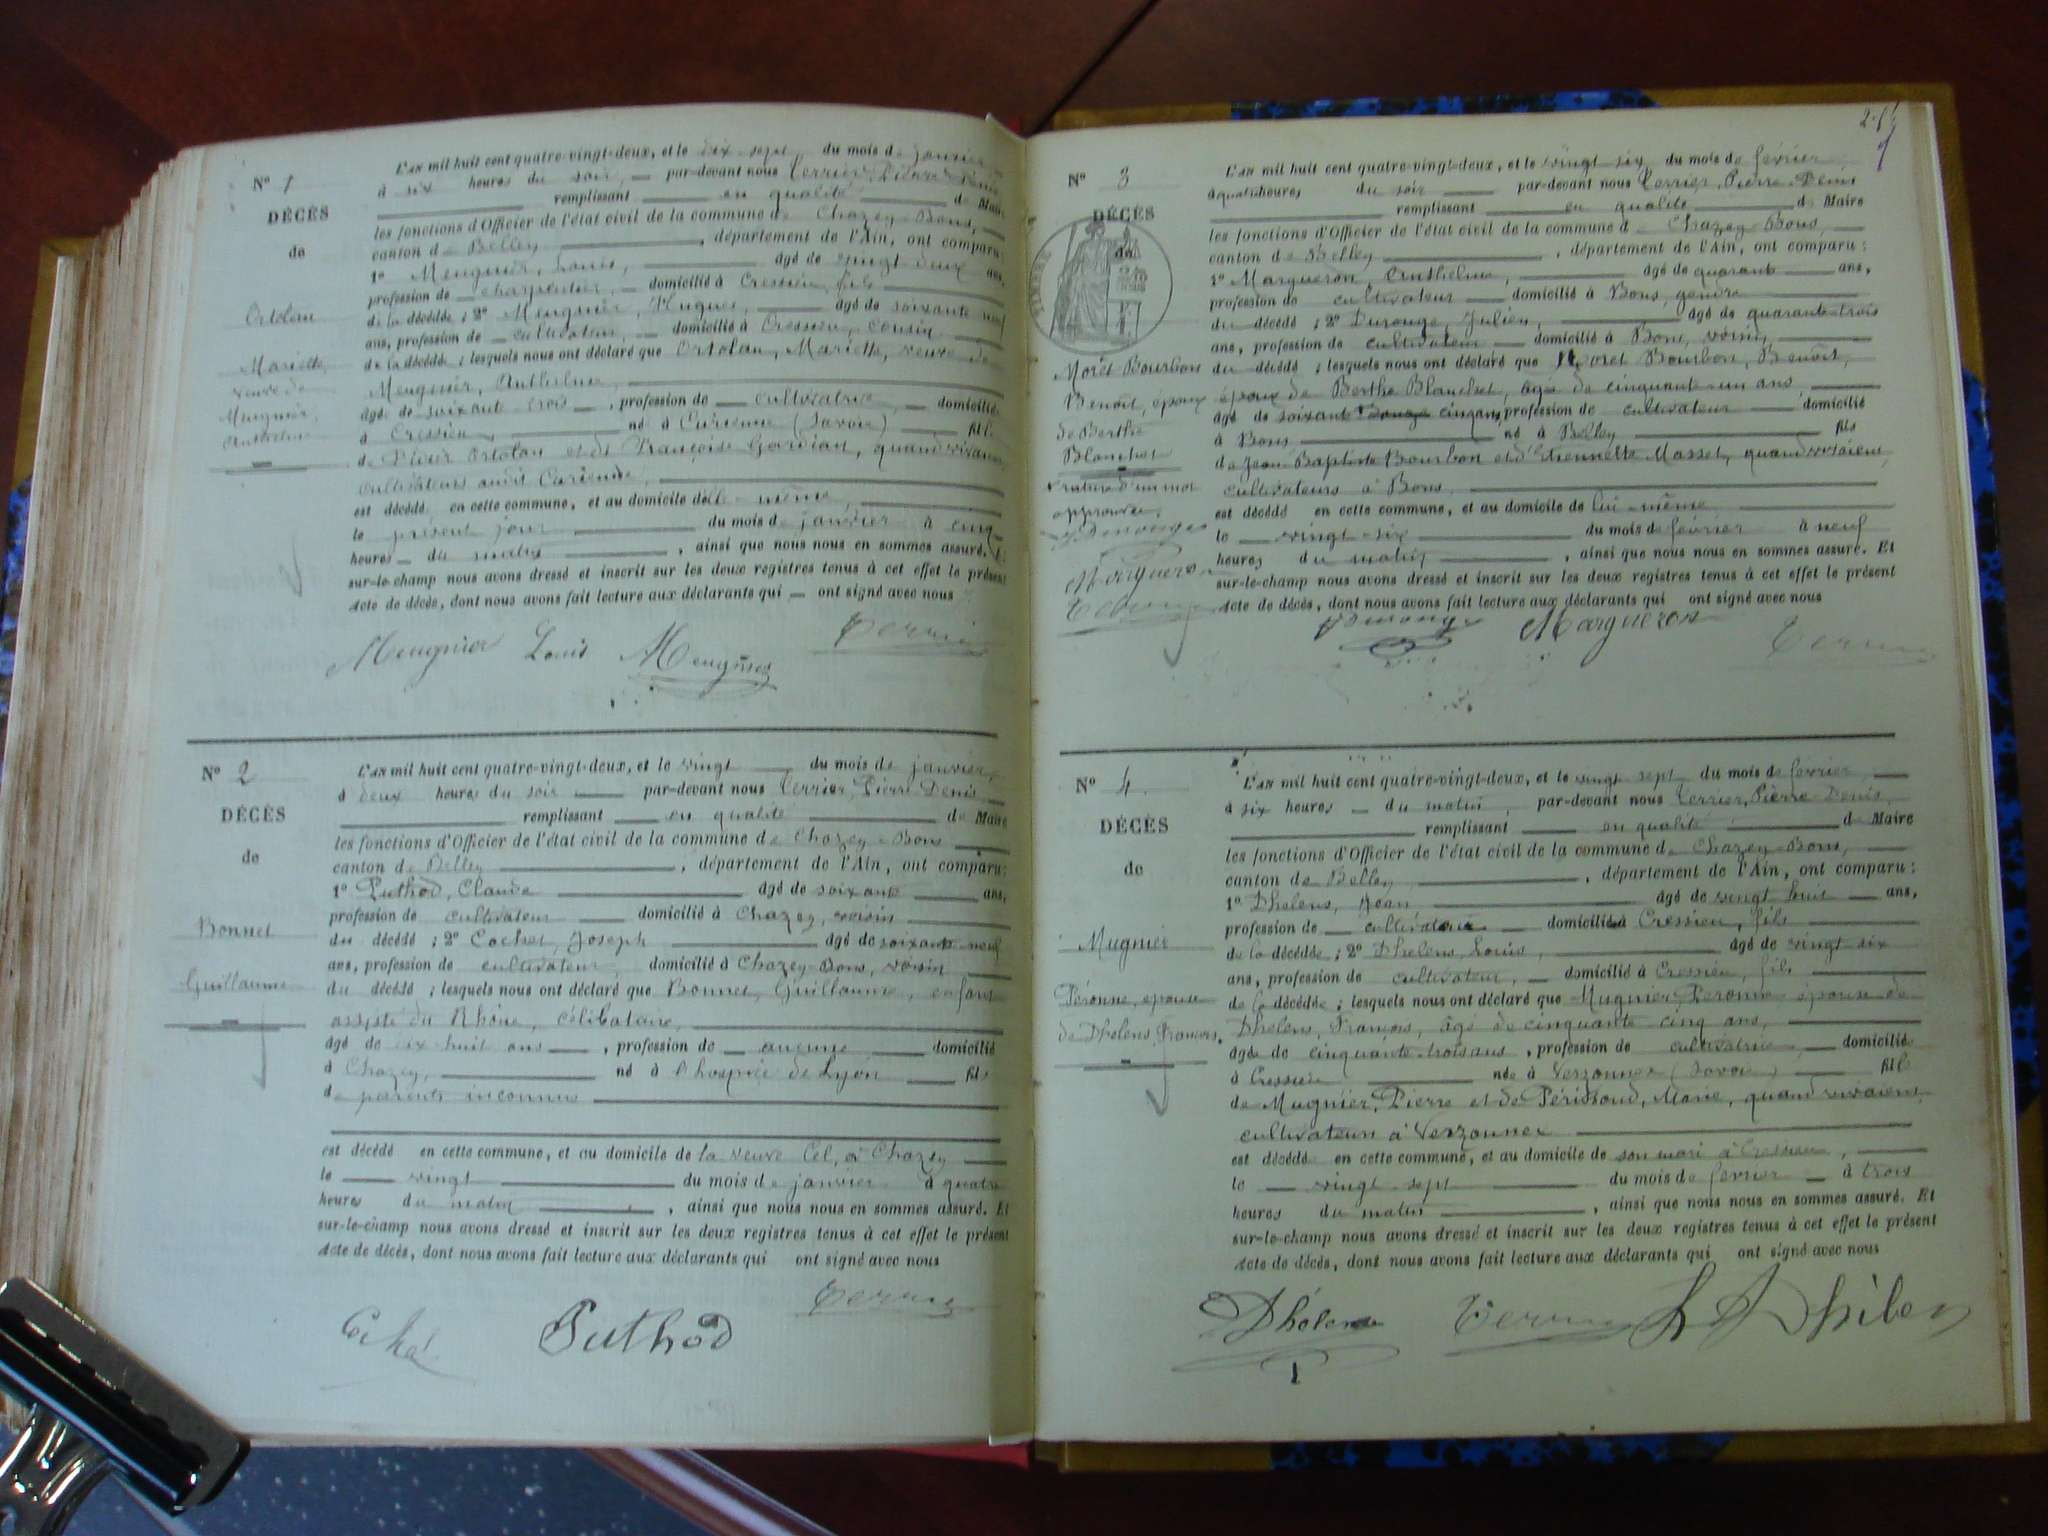 N° 1
DÉCÈS
de
Ortolan
Mariette,
veuve de
Meugnier,
Anthelme
L'AN mil huit cent quatre-vingt-deux, et le dix sept du mois de janvier
à six heures du soir, par-devant nous Terrier, Pierre Denis
remplissant en qualité de Maire
les fonctions d'Officier de l'état civil de la commune de Chazey-Bons,
canton de Belley, département de l'Ain, ont comparu:
1° Meugnier, Louis, âgé de vingt deux ans,
profession de charpentier, domicilié à Cressieu, fils
de la décédée ; 2° Meugnier, Hugues, âgé de soixante neuf
ans, profession de cultivateur, domicilié à Cressieu, cousin
de la décédée ; lesquels nous ont déclaré que Ortolan, Mariette, veuve de
Meugnier, Anthelme,
âgé de soixante trois, profession de cultivatrice, domiciliée
à Cressieu, né à Curienne (Savoie) fille
de Pierre Ortolan et de Françoise, quand vivaient,
cultivateurs audit Curienne,
est décédé en cette commune, et au domicile d'elle-même,
le présent jour du mois de janvier à cinq
heures du matin, ainsi que nous nous en sommes assuré. Et
sur-le-champ nous avons dressé et inscrit sur les deux registres tenus à cet effet le présent
Acte de décès, dont nous avons fait lecture aux déclarants qui ont signé avec nous
Meugnier Louis Meugnier Terrier
N° 2
DÉCÈS
de
Bonnet
Guillaume
L'AN mil huit cent quatre-vingt-deux, et le vingt du mois de janvier,
à deux heures du soir par-devant nous Terrier, Pierre Denis,
remplissant en qualité de Maire
les fonctions d'Officier de l'état civil de la commune de Chazey-Bons
canton de Belley, département de l'Ain, ont comparu:
1° Puthod, Claude âgé de soixante ans,
profession de cultivateur domicilié à Chazey, voisin
du décédé ; 2° Cochet, Joseph âgé de soixante neuf
ans, profession de cultivateur, domicilié à Chazey-Bons, voisin
du décédé ; lesquels nous ont déclaré que Bonnet, Guillaume, enfant
assisté du Rhône, célibataire,
âgé de dix huit ans, profession de aucune domicilié
à Chazey, né à l'hospice de Lyon fils
de parents inconnus
est décédé en cette commune, et au domicile de la veuve Cel, à Chazey
le vingt du mois de janvier à quatre
heures du matin, ainsi que nous nous en sommes assuré. Et
sur-le-champ nous avons dressé et inscrit sur les deux registres tenus à cet effet le présent
Acte de décès, dont nous avons fait lecture aux déclarants qui ont signé avec nous
Terrier
Puthod
N° 3
DÉCÈS
de
TIMBRE
Moret Bourbon
Benoît, époux
de Berthe
Blanchet
rature d'un mot
approuvée.
Margueron
L'AN mil huit cent quatre-vingt-deux, et le vingt six, du mois de février
à quatre heures du soir par-devant nous Terrier, Pierre-Denis
remplissant en qualité de Maire
les fonctions d'Officier de l'état civil de la commune de Chazey-Bons,
canton de Belley, département de l'Ain, ont comparu :
1° Margueron, Anthelme, âgé de quarante ans,
profession de cultivateur domicilié à Bons, gendre
du décédé ; 2° Durouge, Julien, âgé de quarante-trois
ans, profession de cultivateur domicilié à Bons, voisin,
du décédé ; lesquels nous ont déclaré que Moret Bourbon, Benoît,
époux de Berthe Blanchet, âgée de cinquante-un ans
âgé de soixante cinq ans, profession de cultivateur domicilié
à Bons né à Belley fils
de Jean Baptiste Bourbon et d'Etiennette Masset, quand vivaient,
cultivateurs à Bons,
est décédé en cette commune, et au domicile de lui-même
le vingt-six du mois de février à neuf
heures du matin, ainsi que nous nous en sommes assuré. Et
sur-le-champ nous avons dressé et inscrit sur les deux registres tenus à cet effet le présent
Acte de décès, dont nous avons fait lecture aux déclarants qui ont signé avec nous
Margueron Terrier
N° 4
DÉCÈS
de
Mugnier
Péronne, épouse
de Dhelens, François.
L'AN mil huit cent quatre-vingt-deux, et le vingt sept du mois de février,
à six heures du matin, par-devant nous Terrier, Pierre-Denis,
remplissant en qualité de Maire
les fonctions d'Officier de l'état civil de la commune de Chazey-Bons,
canton de Belley, département de l'Ain, ont comparu :
1° Dhelens, Jean âgé de vingt huit ans,
profession de cultivateur domicilié à Cressieu, fils
de la décédée ; 2° Dhelens, Louis, âgé de vingt six
ans, profession de cultivateur, domicilié à Cressieu, fils
de la décédée ; lesquels nous ont déclaré que Mugnier, Péronne épouse de
Dhelens, François, âgé de cinquante cinq ans,
âgée de cinquante-trois ans, profession de cultivatrice, domiciliée
à Cressieu née à Verzonnex (Savoie) fille
de Mugnier, Pierre et de Périssoud, Marie, quand vivaient,
cultivateurs à Verzonnex
est décédée en cette commune, et au domicile de son mari à Cressieu,
le vingt sept du mois de février à trois
heures du matin, ainsi que nous nous en sommes assuré. Et
sur-le-champ nous avons dressé et inscrit sur les deux registres tenus à cet effet le présent
Acte de décès, dont nous avons fait lecture aux déclarants qui ont signé avec nous
Dhelens Terrier